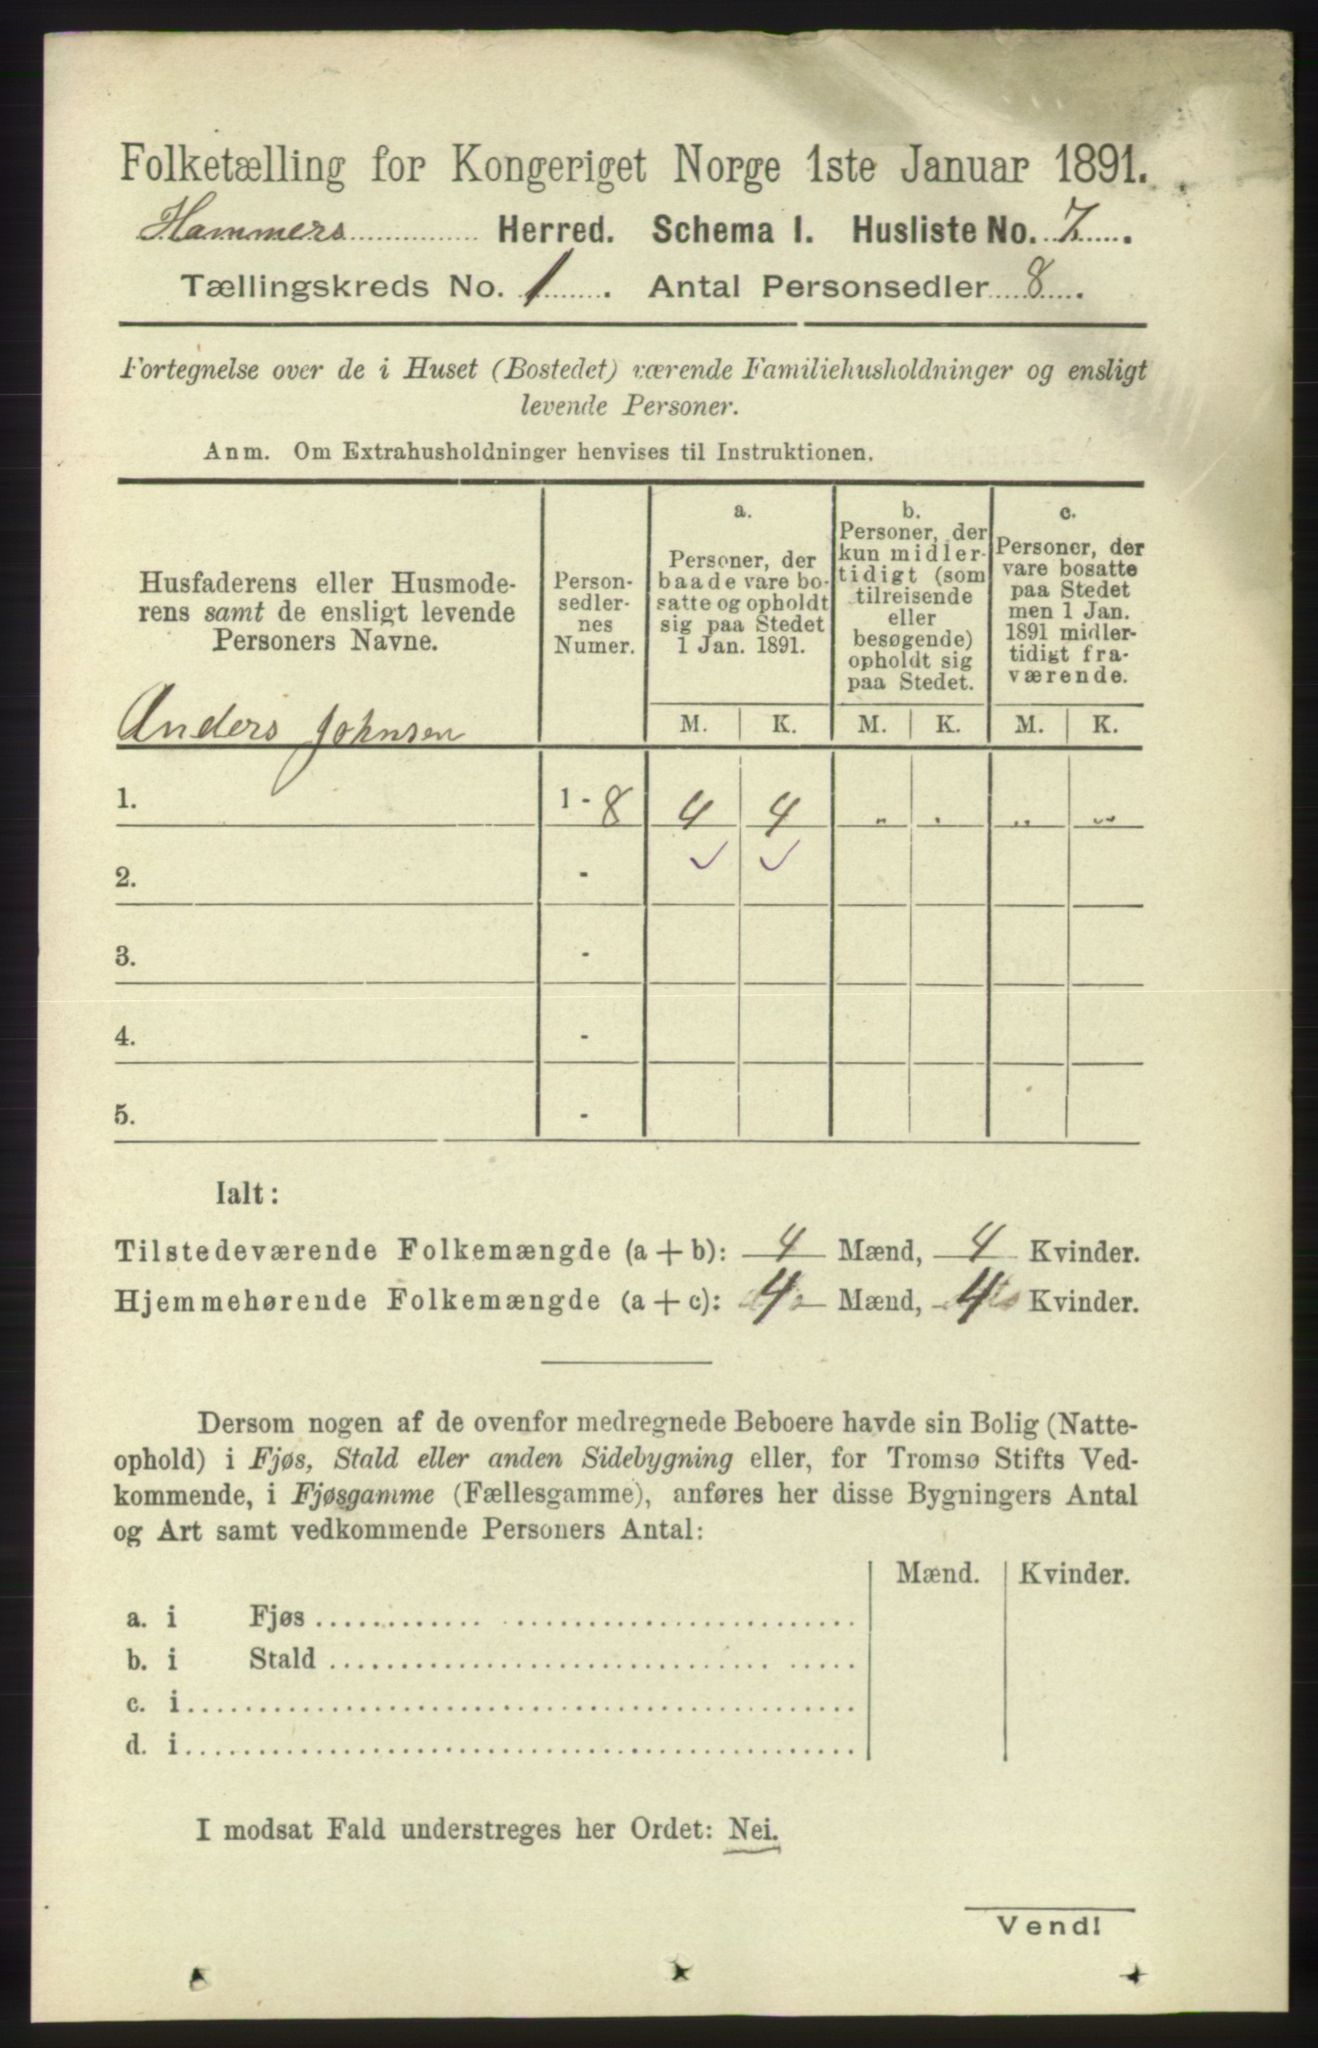 Folketælling for Kongeriget Norge 1ste Januar 1891.
Hammers Herred. Schema I. Husliste No. 7.
Tællingskreds No. 1. Antal Personsedler 8.
Fortegnelse over de i Huset (Bostedet) værende Familiehusholdninger og ensligt
levende Personer.
Anm. Om Extrahusholdninger henvises til Instruktionen.
Husfaderens eller Husmode-
rens samt de ensligt levende
Personers Navne.
Person-
sedler-
nes
Numer.
a.
Personer, der
baade vare bo-
satte og opholdt
sig paa Stedet
1 Jan. 1891.
b.
Personer, der
kun midler-
tidigt (som
tilreisende
eller
besøgende)
opholdt sig
paa Stedet.
c.
Personer, der
vare bosatte
paa Stedet
men 1 Jan.
1891 midler-
tidigt fra-
værende.
M. K. M. K. M. K.
Anders Johnsen
1. 1 - 8 4 4 " " " "
2. - ✓ ✓
3. -
4. -
5. -
Ialt:
Tilstedeværende Folkemængde (a + b): 4 Mænd, 4 Kvinder.
Hjemmehørende Folkemængde (a + c): 4 Mænd, 4 Kvinder.
Dersom nogen af de ovenfor medregnede Beboere havde sin Bolig (Natte-
ophold) i Fjøs, Stald eller anden Sidebygning eller, for Tromsø Stifts Ved-
kommende, i Fjøsgamme (Fællesgamme), anføres her disse Bygningers Antal
og Art samt vedkommende Personers Antal:
Mænd. Kvinder.
a. i Fjøs
b. i Stald
c. i
d. i
I modsat Fald understreges her Ordet: Nei.
Vend!